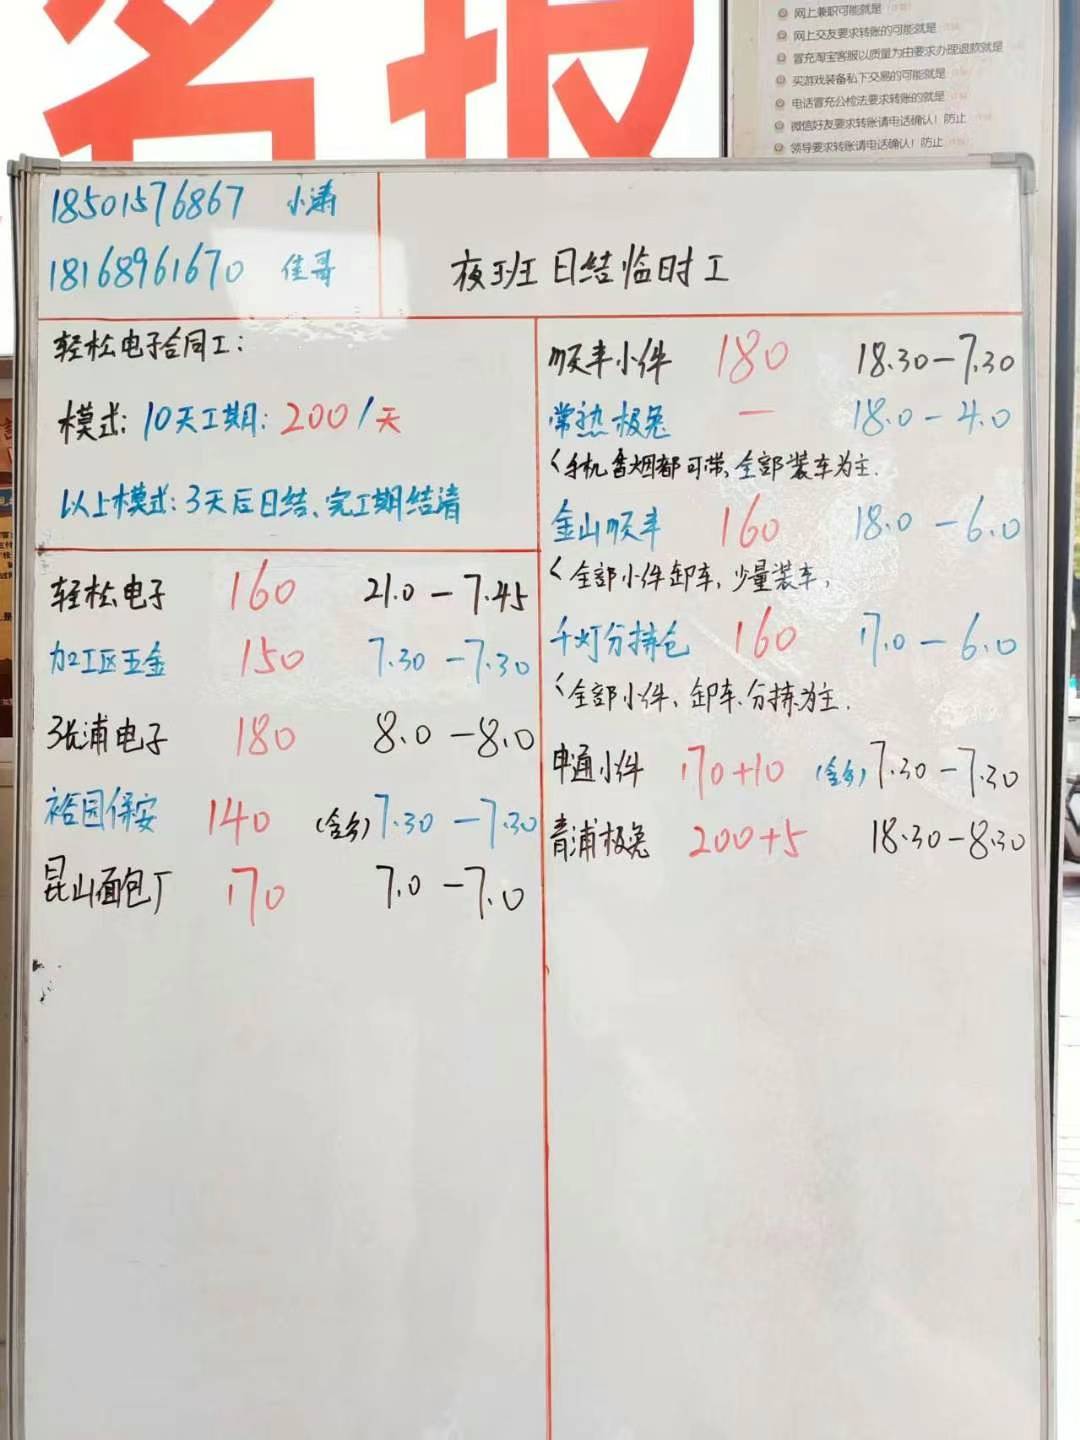 名报
网上兼职可能就是
网上交友要求转账的可能就是
冒充淘宝客服以质量为由要求办理退款就是
买游戏装备私下交易的可能就是
电话冒充公检法要求转账的就是
微信好友要求转账请电话确认！防止
领导要求转账请电话确认！防止
18501576867 小涛
18168961670 佳哥
夜班日结临时工
轻松电子合同工：
模式：10天工期：200/天
以上模式：3天后日结、完工期结清
轻松电子 160 21.0-7.45
加工区五金 150 7.30-7.30
张浦电子 180 8.0-8.0
裕园保安 140 7.30-7.30
昆山面包厂 170 7.0-7.0
顺丰小件 180 18.30-7.30
常熟极兔 — 18.0-4.0
<手机香烟都可带、全部装车为主.
金山顺丰 160 18.0-6.0
<全部小件卸车,少量装车,
千灯分拣仓 160 17.0-6.0
<全部小件、卸车.分拣为主.
申通小件 170+10 7.30-7.30
青浦极兔 200+5 18.30-8.30